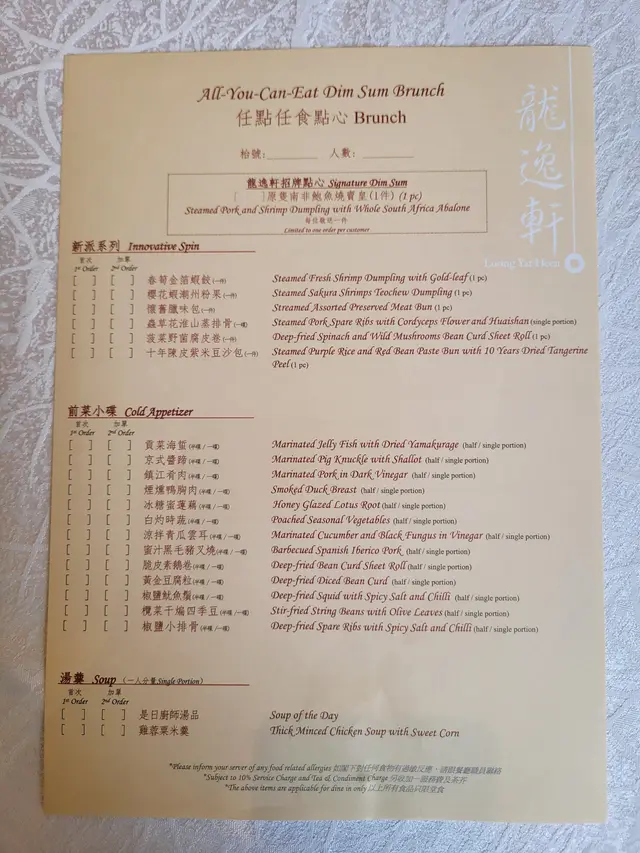 All-You-Can-Eat Dim Sum Brunch
任點任食點心 Brunch
龍逸軒
Loong Yat Heen
枱號:________ 人數: ________
龍逸軒招牌點心 Signature Dim Sum
[ ]原隻南非鮑魚燒賣皇(1件) (1 pc)
Steamed Pork and Shrimp Dumpling with Whole South Africa Abalone
每位敬送一件
Limited to one order per customer
新派系列 Innovative Spin
首次 加單
1st Order 2nd Order
[ ] [ ] 春筍金箔蝦餃(一件) Steamed Fresh Shrimp Dumpling with Gold-leaf (1 pc)
[ ] [ ] 櫻花蝦潮州粉果(一件) Steamed Sakura Shrimps Teochew Dumpling (1 pc)
[ ] [ ] 懷舊臘味包(一件) Streamed Assorted Preserved Meat Bun (1 pc)
[ ] [ ] 蟲草花淮山蒸排骨(一碟) Steamed Pork Spare Ribs with Cordyceps Flower and Huaishan (single portion)
[ ] [ ] 菠菜野菌腐皮卷(一件) Deep-fried Spinach and Wild Mushrooms Bean Curd Sheet Roll (1 pc)
[ ] [ ] 十年陳皮紫米豆沙包(一件) Steamed Purple Rice and Red Bean Paste Bun with 10 Years Dried Tangerine
Peel (1 pc)
前菜小碟 Cold Appetizer
首次 加單
1st Order 2nd Order
[ ] [ ] 貢菜海蜇(半碟 / 一碟) Marinated Jelly Fish with Dried Yamakurage (half / single portion)
[ ] [ ] 京式醬蹄(半碟 / 一碟) Marinated Pig Knuckle with Shallot (half / single portion)
[ ] [ ] 鎮江肴肉(半碟 / 一碟) Marinated Pork in Dark Vinegar (half / single portion)
[ ] [ ] 煙燻鴨胸肉(半碟 / 一碟) Smoked Duck Breast (half / single portion)
[ ] [ ] 冰糖蜜蓮藕(半碟 / 一碟) Honey Glazed Lotus Root (half / single portion)
[ ] [ ] 白灼時蔬(半碟 / 一碟) Poached Seasonal Vegetables (half / single portion)
[ ] [ ] 涼拌青瓜雲耳(半碟 / 一碟) Marinated Cucumber and Black Fungus in Vinegar (half / single portion)
[ ] [ ] 蜜汁黑毛豬叉燒(半碟 / 一碟) Barbecued Spanish Iberico Pork (half / single portion)
[ ] [ ] 脆皮素鵝卷(半碟 / 一碟) Deep-fried Bean Curd Sheet Roll (half / single portion)
[ ] [ ] 黃金豆腐粒(半碟 / 一碟) Deep-fried Diced Bean Curd (half / single portion)
[ ] [ ] 椒鹽魷魚鬚(半碟 / 一碟) Deep-fried Squid with Spicy Salt and Chilli (half / single portion)
[ ] [ ] 欖菜干煸四季豆(半碟 / 一碟) Stir-fried String Beans with Olive Leaves (half / single portion)
[ ] [ ] 椒鹽小排骨(半碟 / 一碟) Deep-fried Spare Ribs with Spicy Salt and Chilli (half / single portion)
湯羹 Soup (一人分量 Single Portion)
首次 加單
1st Order 2nd Order
[ ] [ ] 是日廚師湯品 Soup of the Day
[ ] [ ] 雞蓉粟米羹 Thick Minced Chicken Soup with Sweet Corn
*Please inform your server of any food related allergies 如閣下對任何食物有過敏反應，請跟餐廳職員聯絡
*Subject to 10% Service Charge and Tea & Condiment Charge 另收加一服務費及茶芥
*The above items are applicable for dine in only 以上所有食品只限堂食